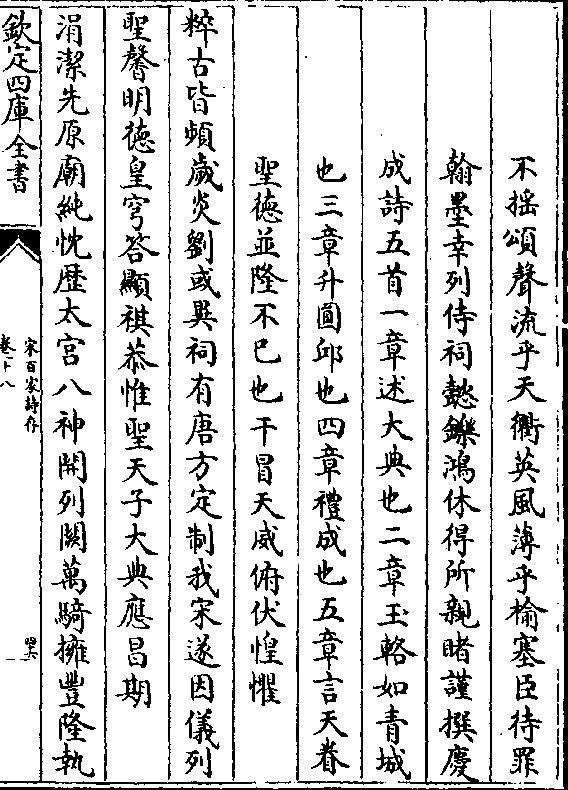 不揺頌聲流乎天衢英風薄乎榆塞臣待罪
翰墨幸列侍祠懿鑠鴻休得所親睹謹撰慶
成詩五首一章述大典也二章玉輅如青城
也三章升圜邱也四章禮成也五章言天眷
聖徳並隆不巳也干冒天威俯伏惶懼
粹古皆頻嵗炎劉或異祠有唐方定制我宋遂因儀列
聖馨明徳皇穹答顯祺恭惟聖天子大典應昌期
涓潔先原廟純忱歴太宫八神開列闕萬騎擁豐隆執
欽定四庫全書
宋百家詩存
卷十八